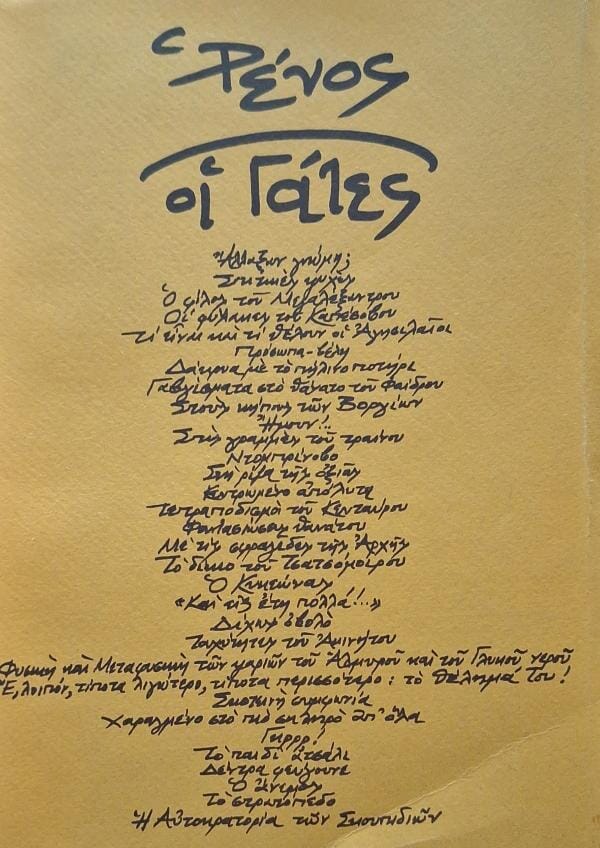 Ῥένος
οἱ Γάτες
Ἤλλαξαν γνώμη;
Σπιτικὲς ψυχὲς
Ὁ φίλος τοῦ Μεγαλέξαντρου
Οἱ φύλακες τοῦ Καπέσοβου
Τί εἶναι καὶ τί θέλουν οἱ Ἀγησιλαῖοι
Πρόσωπα-βέλη
Δάκρυα μὲ τὸ πήλινο ποτήρι
Γαβγίσματα στὸ θάνατο τοῦ Φαίδρου
Στοὺς κήπους τῶν Βοργίων
Ἤμουν!..
Στὶς γραμμὲς τοῦ τραίνου
Ντομπρίνοβο
Στὴ ρίζα τῆς ὀξιᾶς
Κεντρωμένο ἀπόλυτα
Τετραποδισμοὶ τοῦ Κενταύρου
Φαντασιώσεις θανάτου
Μὲ τὶς τῆς Ἀρχῆς
Τὸ δίκιο τοῦ
Ὁ
«Καὶ εἰς ἔτη πολλά!...»
Δίχως ὀβολὸ
Ταχύτητες τοῦ Ἀκινήτου
Φυσικὴ καὶ Μεταφυσικὴ τῶν ψαριῶν τοῦ Ἁλμυροῦ καὶ τοῦ Γλυκοῦ νεροῦ
Ἔ, λοιπόν, τίποτα λιγώτερο, τίποτα περισσότερο: τὸ θέλημά Του!
Σιωπηλὴ συμφωνία
Χαραγμένο στὸ πιὸ σκληρὸ ἀπ' ὅλα
Γκρρρ!
Τὸ παιδὶ ἀτσάλι
Δέντρα φεύγουνε
Ὁ ἄνεμος
Τὸ στρατόπεδο
Ἡ Αὐτοκρατορία τῶν Σκουπιδιῶν